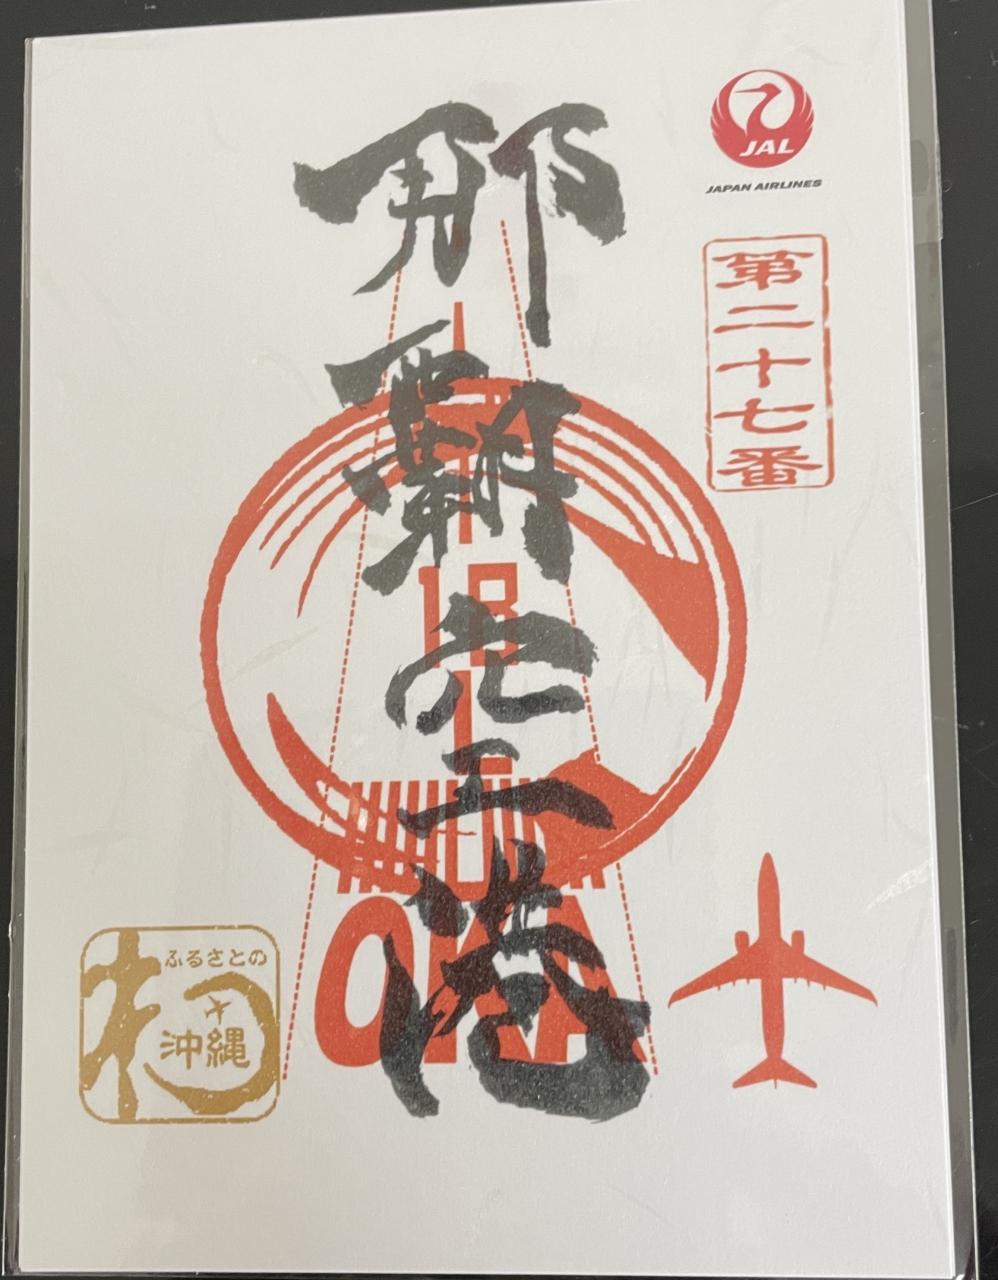 JAL
JAPAN AIRLINES
第二十七番
那覇空港
18
L
OKA
ふるさとの
沖縄